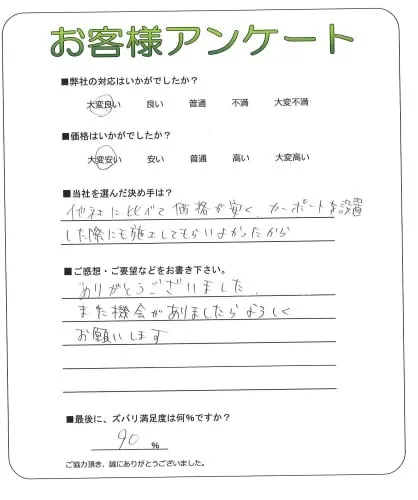 お客様アンケート
■弊社の対応はいかがでしたか?
大変良い 良い 普通 不満 大変不満
■価格はいかがでしたか?
大変安い 安い 普通 高い 大変高い
■当社を選んだ決め手は?
他社に比べて価格が安く、カーポートを設置
した際にも施工してもらいよかったから
■ご感想・ご要望などをお書き下さい。
ありがとうございました。
また機会がありましたらよろしく
お願いします
■最後に、ズバリ満足度は何%ですか?
90 %
ご協力頂き、誠にありがとうございました。